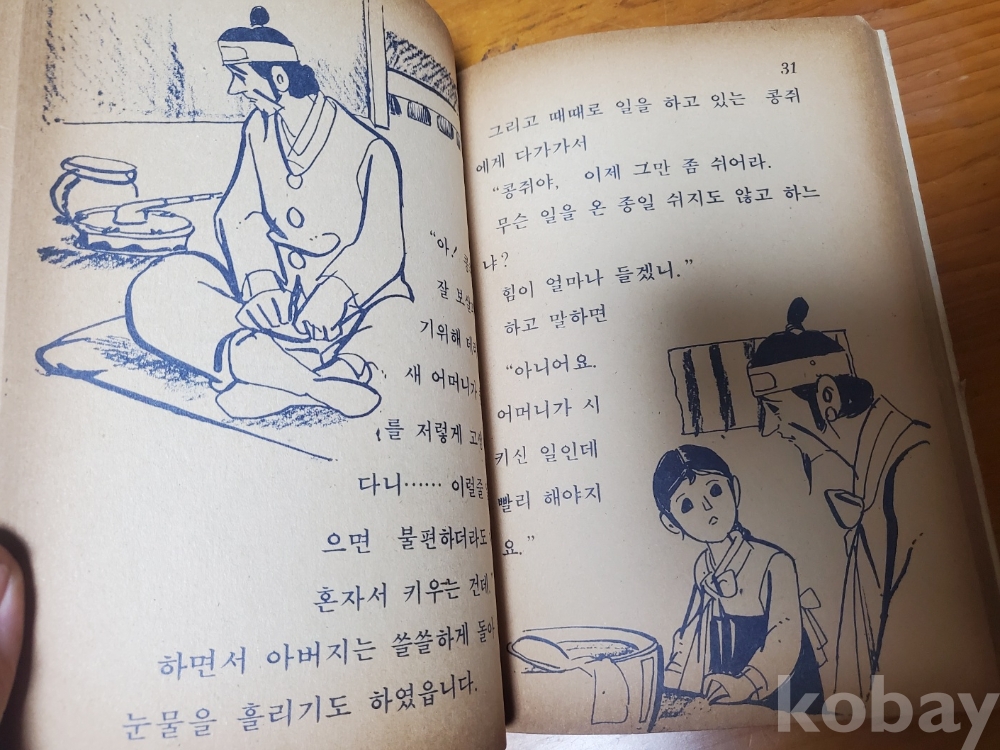 "아!
잘
기위해
새 어머니가
를 저렇게
다니…… 이럴줄
으면 불편하더라도
혼자서 키우는 건데.
하면서 아버지는 쓸쓸하게 돌아
눈물을 흘리기도 하였읍니다.
31
그리고 때때로 일을 하고 있는 콩쥐
에게 다가가서
"콩쥐야, 이제 그만 좀 쉬어라.
무슨 일을 온 종일 쉬지도 않고 하느
냐?
힘이 얼마나 들겠니."
하고 말하면
"아니어요.
어머니가 시
키신 일인데
빨리 해야지
요."
kobay